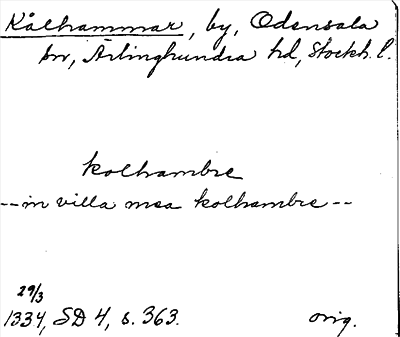 Kålhammar, by, Odensala
sn, Ärlinghundra hd, Stockh. l.
kolhambre
--in villa mea kolhambre--
29/3
1334, SD 4, s. 363. orig.